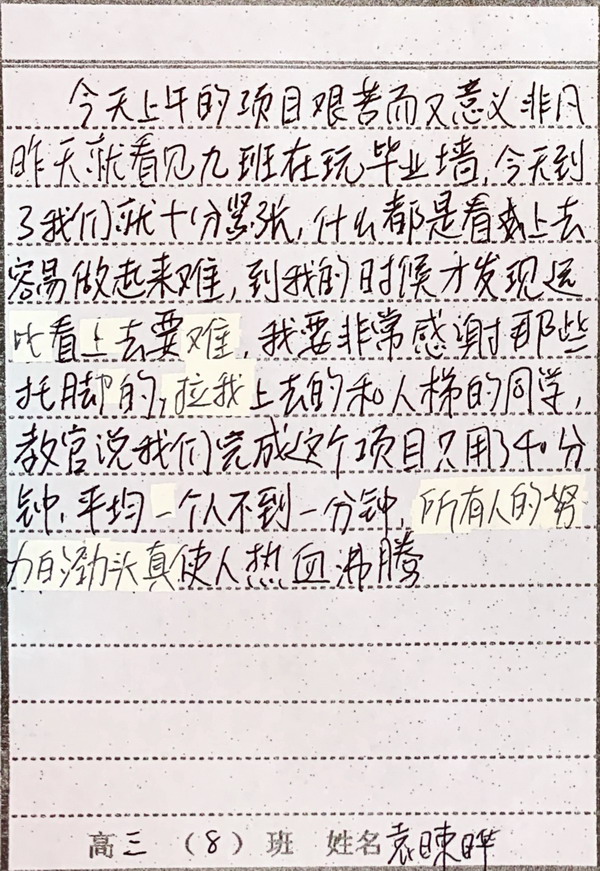 今天上午的项目艰苦而又意义非凡
昨天就看见九班在玩毕业墙,今天到
了我们就十分紧张,什么都是看上去
容易做起来难,到我的时候才发现远
比看上去要难,我要非常感谢那些
托脚的,拉我上去的和人梯的同学,
教官说我们完成这个项目只用了40分
钟,平均一个人不到一分钟,所有人的努
力的劲头真使人热血沸腾
高三(8)班 姓名袁暕晔